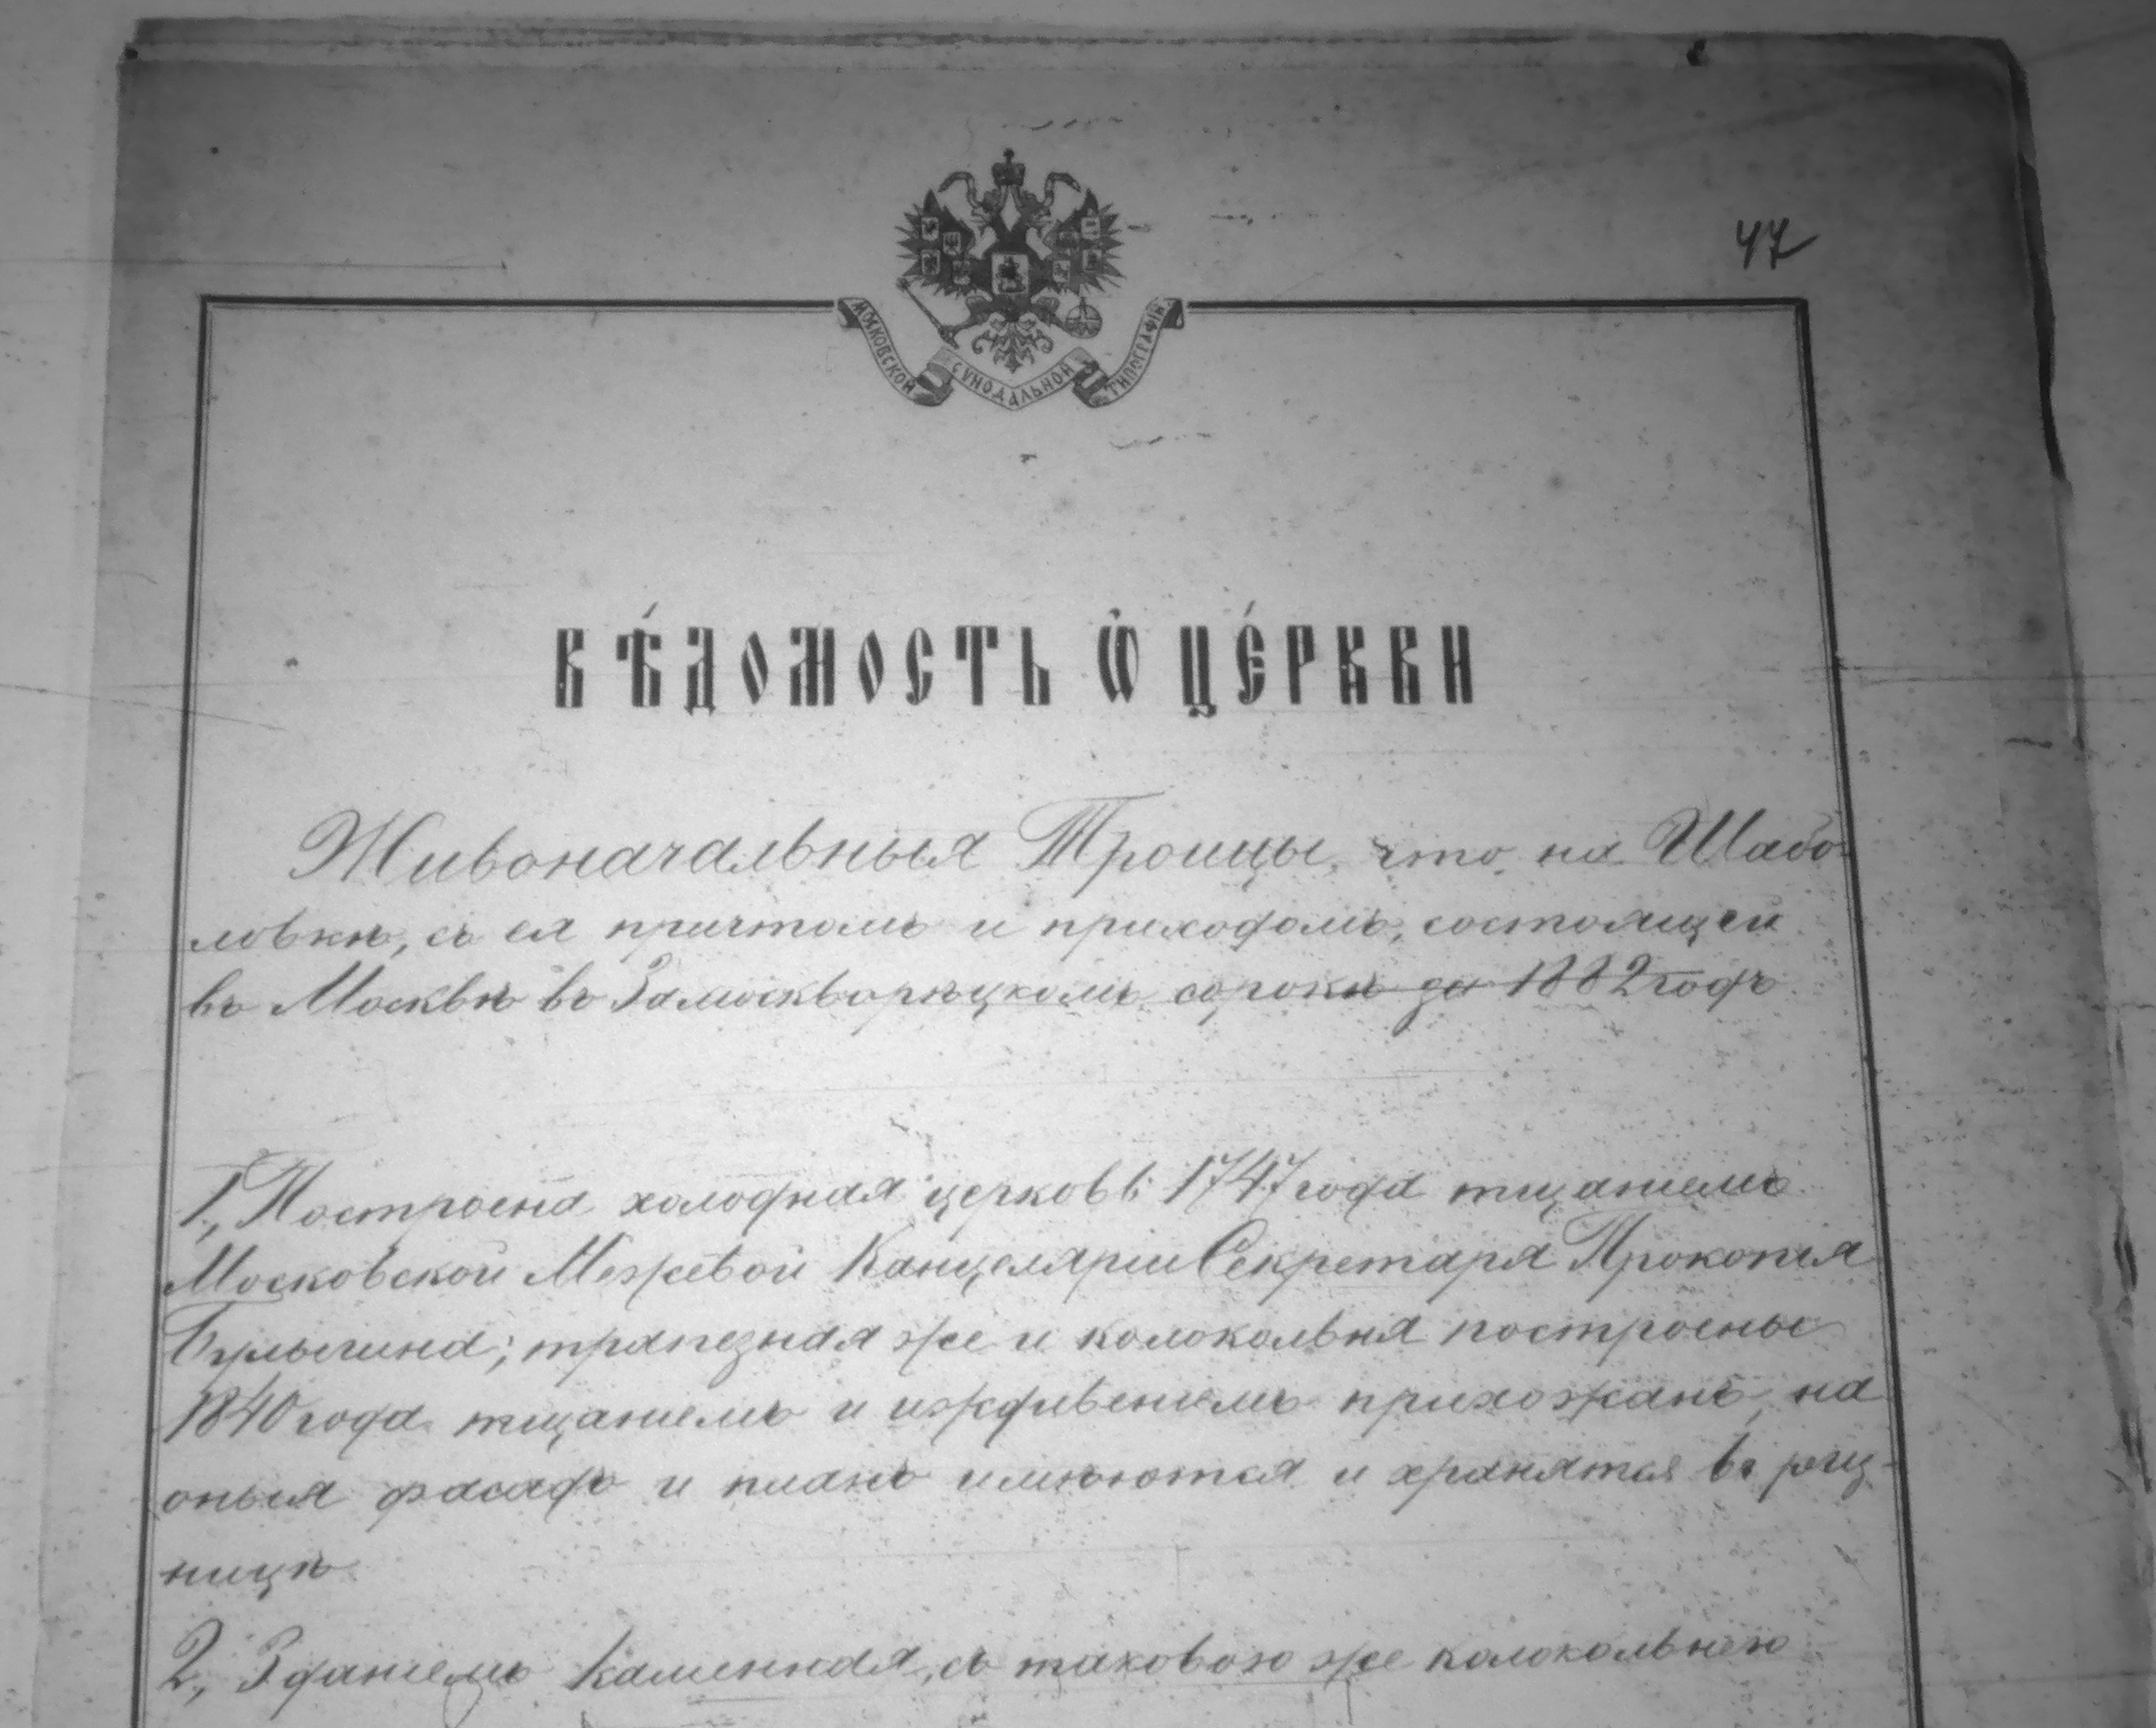 47
МОСКОВСКОЙ СѴНОДАЛЬНОЙ ТИПОГРАФІИ
ВѢ́ДОМОСТЬ Ѡ҆ ЦЕ́РКВИ
Живоначальныя Троицы, что на Шабо-
ловкѣ, съ ея причтомъ и приходомъ, состоящей
въ Москвѣ въ Замоскворѣцкомъ сорокѣ за 1882 годъ
1., Построена холодная церковь 1747 года тщаніемъ
Московской Межевой Канцеляріи Секретаря Прокопія
Булыгина; трапезная же и колокольня построены
1840 года тщаніемъ и иждивеніемъ прихожанъ, на
оныя фасадъ и планъ имѣются и хранятся въ риз-
ницѣ
2., Зданіемъ каменная, съ таковою же колокольнею